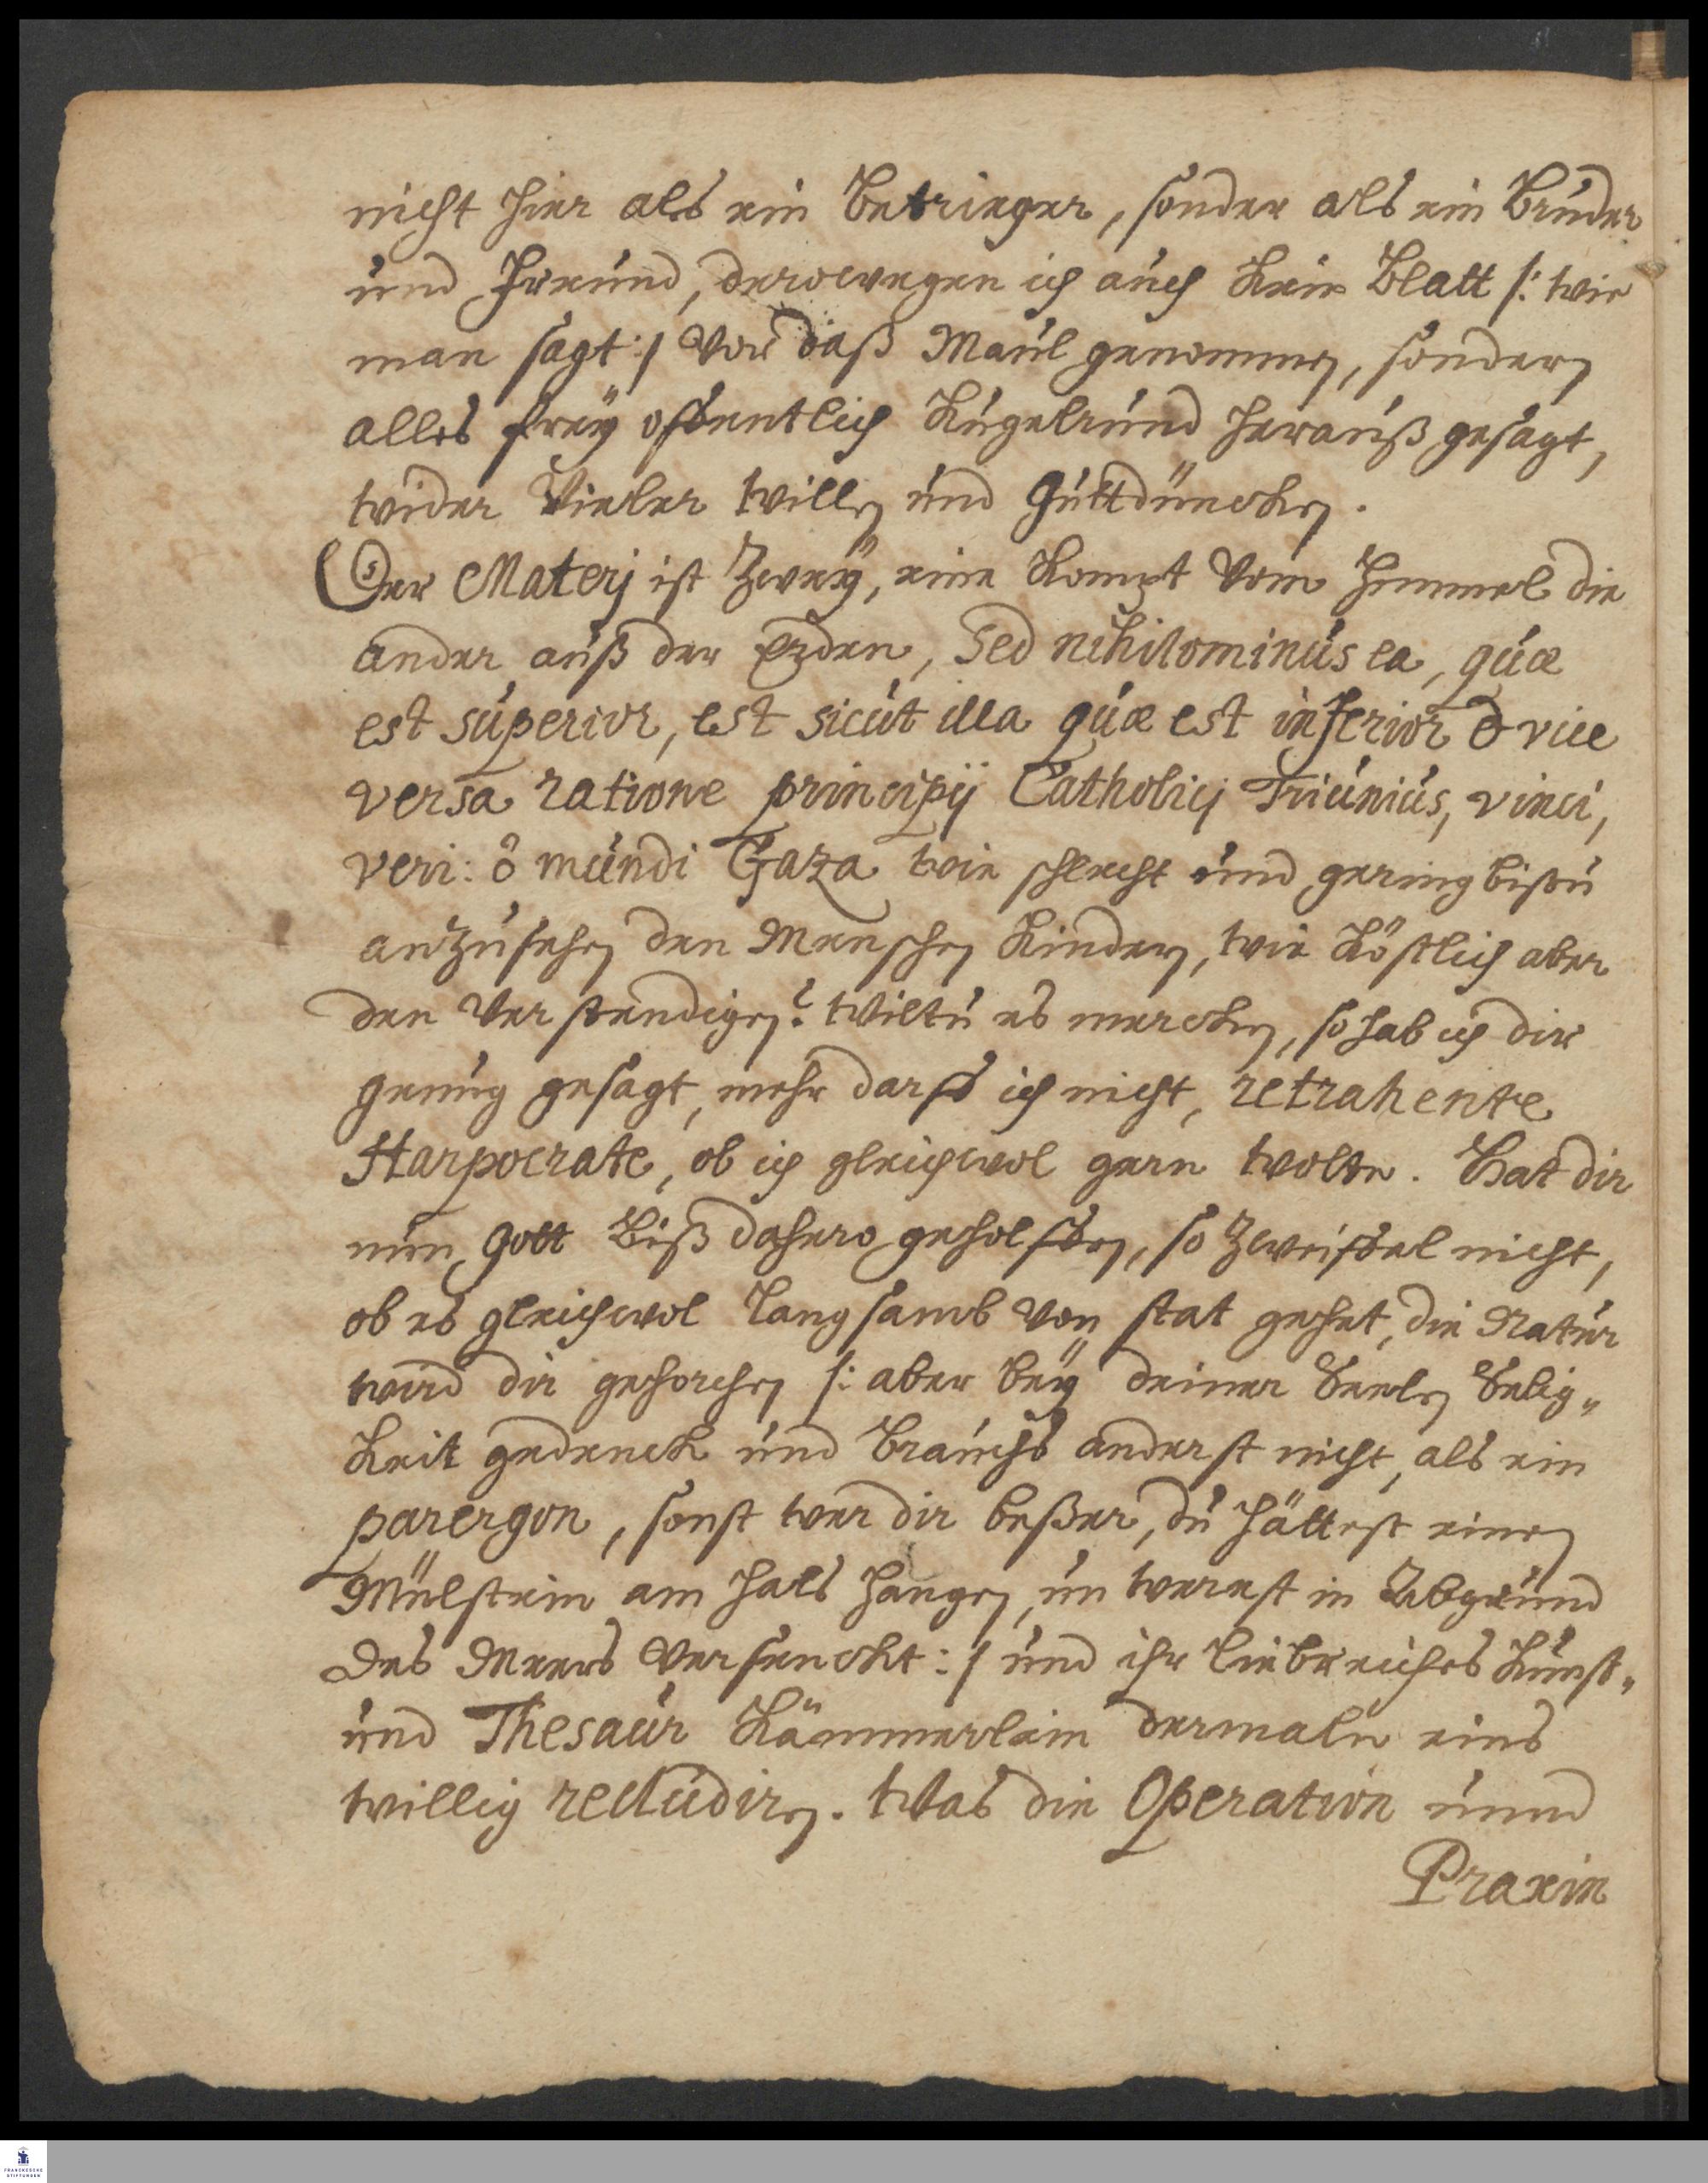 nicht hier als ein Betrieger, sonder als ein Bruder
und Freund, derowegen ich auch kein Blatt /: wie
man sagt :/ vor daß Maul genommen, sondern
alles frey offentlich Kugelrund herauß gesagt,
wider Vieler willen und Guttdüncken.
Der Materj ist Zwey, eine kompt vom Himmel die
ander auß der Erden, Sed nihilominus ea, quæ
est superior, est sicut illa quæ est inferior & vice
versa ratione principij Catholicj Triunius, vinci,
veri: ô mundi Gaza wie schlecht und gering bistu
anzusehen den Menschen Kindern, wie köstlich aber
den Verstendigen? Wiltu es mercken, so hab ich dir
genug gesagt, mehr darff ich nicht, retrahente
Harpocrate, ob ich gleichwol gern wolte. Hat dir
nun Gott biß dahero geholffen, so zweiffel nicht,
ob es gleichwol langsamb von stat gehet, die Natur
wird dir gehorchen /: aber bey deiner Seelen Selig„
keit gedenck und brauchs anderst nicht, als ein
parergon, sonst wer dir beßer, du hättest einen
Mülstein am Hals hangen, un werest in Abgrund
des Meers versenckt :/ und ihr liebreiches Kunst„
und Thesaur Kämmerlein dermaln eins
willig recludiren. Was die Operation unnd
Praxin
FRANCKESCHE
STIFTUNGEN